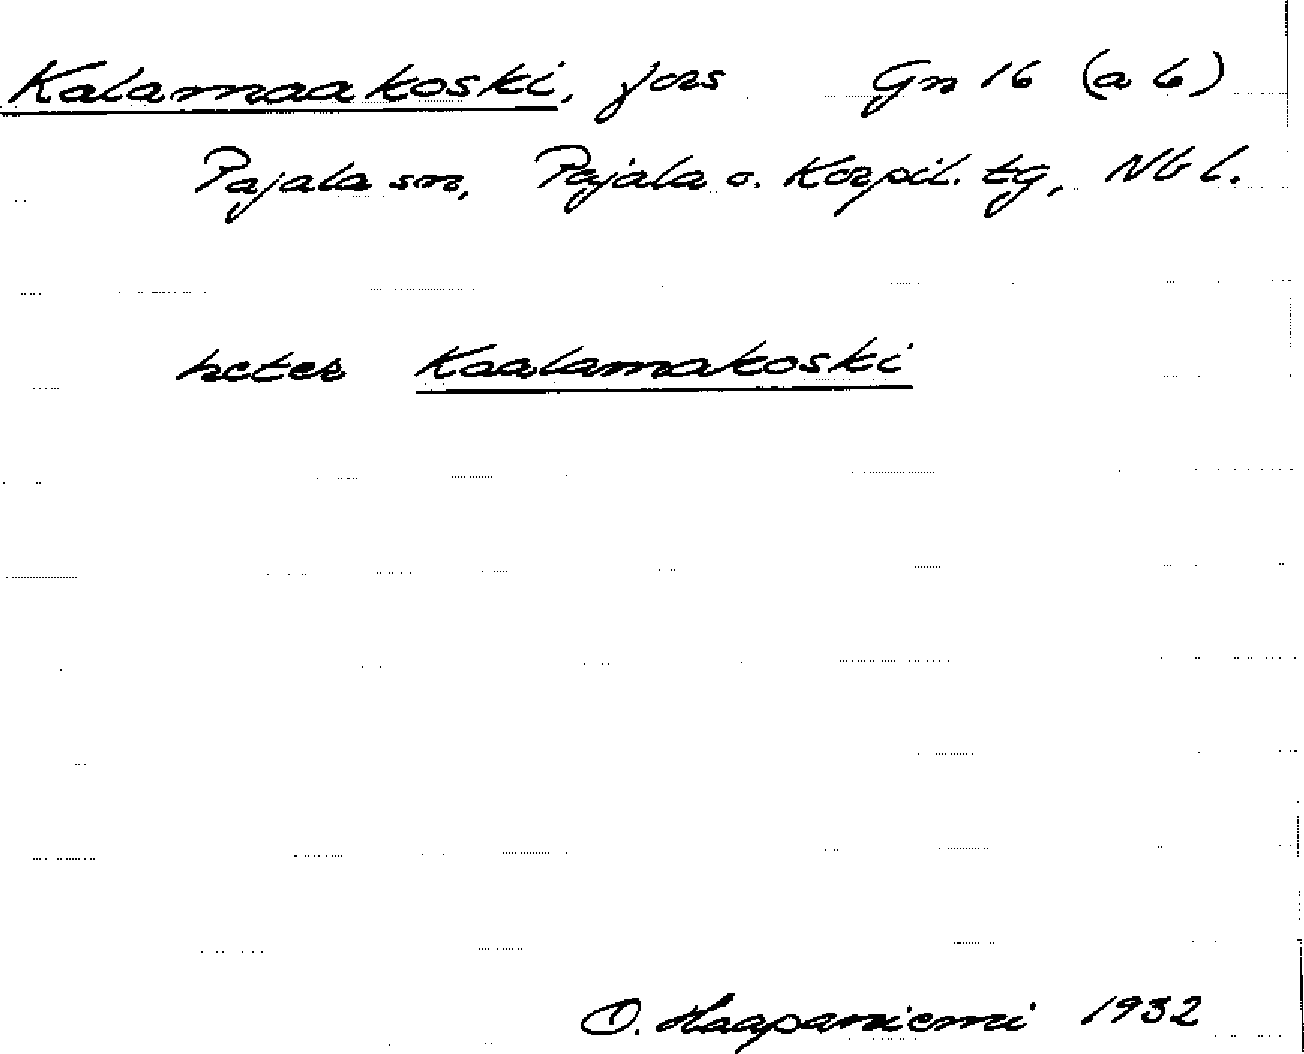 Kalamaakoski, fors Gn 16 (a b)
Pajala sn, Pajala o. Korpil. tg, Nb l.
heter Kaalamakoski
O. Haapaniemi 1932